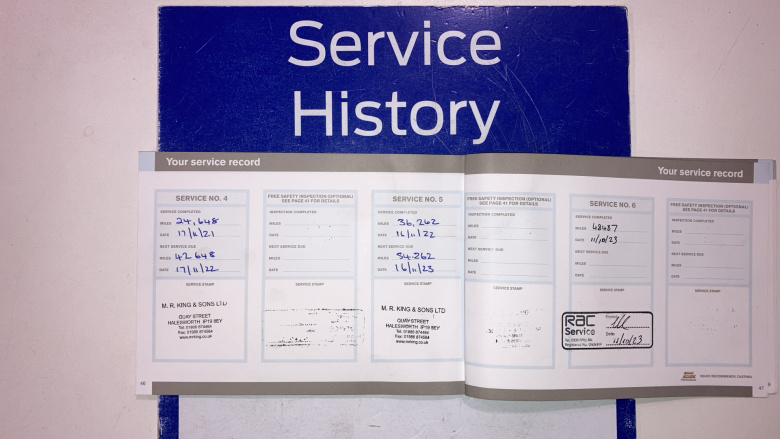 Service
History
Your service record
Your service record
SERVICE NO. 4
SERVICE COMPLETED
MILES 24,648
DATE 17/11/21
NEXT SERVICE DUE
MILES 42 648
DATE 17/11/22
SERVICE STAMP
M. R. KING & SONS LTD
QUAY STREET
HALESWORTH IP19 8EY
Tel. 01986 874464
Fax: 01986 874564
www.mrking.co.uk
FREE SAFETY INSPECTION (OPTIONAL)
SEE PAGE 41 FOR DETAILS
INSPECTION COMPLETED
MILES
DATE
NEXT SERVICE DUE
MILES
DATE
SERVICE STAMP
SERVICE NO. 5
SERVICE COMPLETED
MILES 36,262
DATE 16/11/22
NEXT SERVICE DUE
MILES 54,262
DATE 16/11/23
SERVICE STAMP
M. R. KING & SONS LTD
QUAY STREET
HALESWORTH IP19 8EY
Tel. 01986 874464
Fax: 01986 874564
www.mrking.co.uk
FREE SAFETY INSPECTION (OPTIONAL)
SEE PAGE 41 FOR DETAILS
INSPECTION COMPLETED
MILES
DATE
NEXT SERVICE DUE
MILES
DATE
SERVICE STAMP
SERVICE NO. 6
SERVICE COMPLETED
MILES 48487
DATE 11/10/23
NEXT SERVICE DUE
MILES
DATE
SERVICE STAMP
RAC
Service
Date 11/10/23
FREE SAFETY INSPECTION (OPTIONAL)
SEE PAGE 41 FOR DETAILS
INSPECTION COMPLETED
MILES
DATE
NEXT SERVICE DUE
MILES
DATE
SERVICE STAMP
46
47